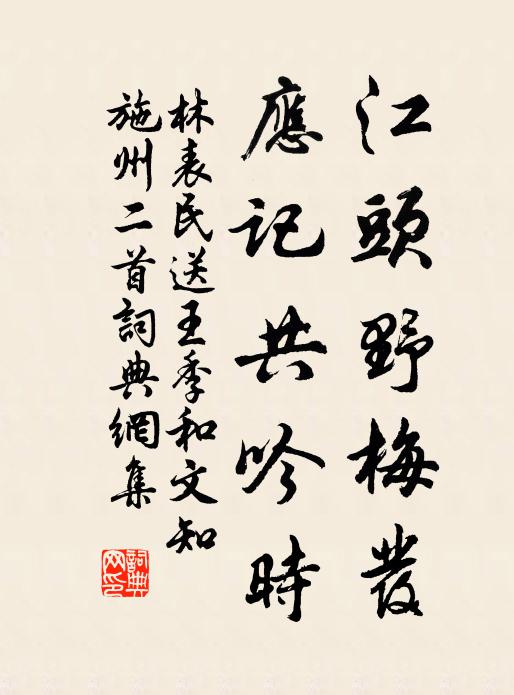 江頭野梅發
應記共吟時
林表民送王季和文知
施州二首詞典網集
詞典網印